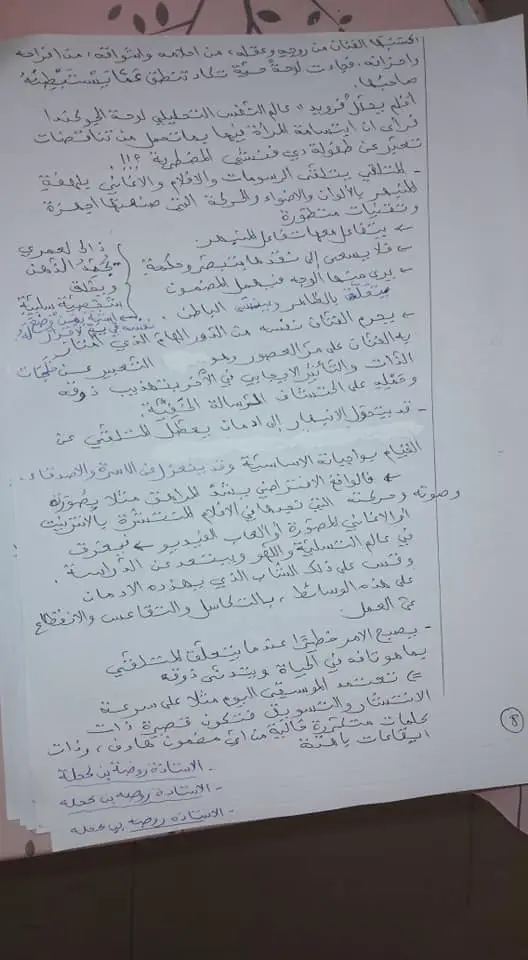 اكتسبها الفنان من روحه وعقله، من احلامه واشواقه، من افراحه
واحزانه، فجاءت لوحة حيّة تكاد تنطق عمّا يستبطنه
صاحبها.
أفلم يحلّل "فرويد" عالم النفس التحليلي لوحة الجوكندا
فرأى ان ابتسامة المرأة فيها بما تحمل من تناقضات
تعبّر عن طفولة دي فنتشي المضطربة؟!!
- المتلقي يتلقى الرسومات والافلام والاغاني بلهفة
المنبهر بالألوان والاضواء والحركة التي صنعتها اجهزة
وتقنيات متطورة
← يتفاعل معها تفاعل المنبهر.
← فلا يسعى إلى نقدها بتبصر وحكمة
← يرى منها الوجه فيهمل المضمون
يتعلّق بالظاهر وينسى الباطن.
ذالك لعمري
الذهن
ويخلق
شخصية سلبية
← يحرم الفنان نفسه من الدور الهام الذي امتاز
به الفنان على مرّ العصور وهو التعبير عن خلجات
الذات والتأثير الايجابي في الآخر بتهذيب ذوقه
وحمله على اكتشاف الرسالة الخفيّة.
- قد يتحول الانبهار إلى ادمان يعطّل المتلقي عن
القيام بواجباته الاساسيّة وقد ينعزل عن الاسرة والاصدقاء.
← فالواقع الافتراضي يشدّ المراهق مثلا بصوره
وصوته وحركته التي نجدها في الافلام المنتشرة بالانترنيت
او الاغاني المصوّرة او العاب الفيديو ← فيغرق
في عالم التسلية واللهو ويبتعد عن الدراسة.
وقس على ذلك الشاب الذي يهدده الادمان
على هذه الوسائط، بالتكاسل والتقاعس والانقطاع
عن العمل.
- يصبح الامر خطيرًا عندما يتعلّق المتلقي
بما هو تافه في الحياة ويتدنّى ذوقه
= تعتمد الموسيقى اليوم مثلا على سرعة
الانتشار والتسويق فتكون قصيرة ذات
كلمات متكررة خالية من أيّ مضمون هادف، وذات
ايقاعات باهتة
8
- الاستاذة روضة بن كحلة
- الاستاذة روضة بن كحلة
- الاستاذة روضة بن كحلة